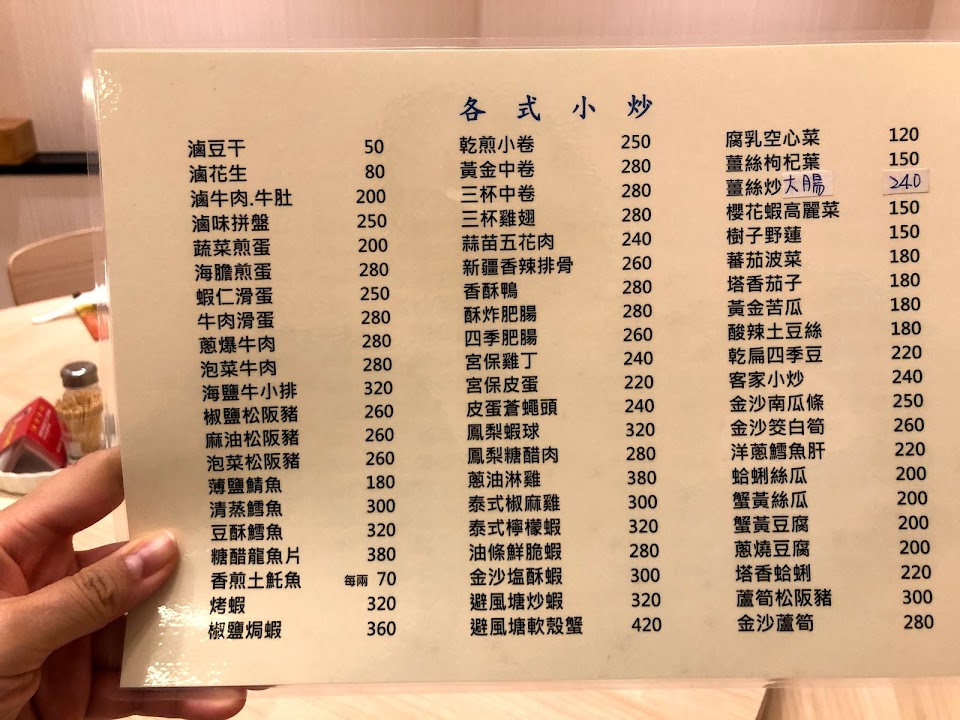 各式小炒
滷豆干 50
滷花生 80
滷牛肉.牛肚 200
滷味拼盤 250
蔬菜煎蛋 200
海膽煎蛋 280
蝦仁滑蛋 250
牛肉滑蛋 280
蔥爆牛肉 280
泡菜牛肉 280
海鹽牛小排 320
椒鹽松阪豬 260
麻油松阪豬 260
泡菜松阪豬 260
薄鹽鯖魚 180
清蒸鱈魚 300
豆酥鱈魚 320
糖醋龍魚片 380
香煎土魠魚 每兩 70
烤蝦 320
椒鹽焗蝦 360
乾煎小卷 250
黃金中卷 280
三杯中卷 280
三杯雞翅 280
蒜苗五花肉 240
新疆香辣排骨 260
香酥鴨 280
酥炸肥腸 280
四季肥腸 260
宮保雞丁 240
宮保皮蛋 220
皮蛋蒼蠅頭 240
鳳梨蝦球 320
鳳梨糖醋肉 280
蔥油淋雞 380
泰式椒麻雞 300
泰式檸檬蝦 320
油條鮮脆蝦 280
金沙塩酥蝦 300
避風塘炒蝦 320
避風塘軟殼蟹 420
腐乳空心菜 120
薑絲枸杞葉 150
薑絲炒大腸 240
櫻花蝦高麗菜 150
樹子野蓮 150
蕃茄波菜 180
塔香茄子 180
黃金苦瓜 180
酸辣土豆絲 180
乾扁四季豆 220
客家小炒 240
金沙南瓜條 250
金沙筊白筍 260
洋蔥鱈魚肝 220
蛤蜊絲瓜 200
蟹黃絲瓜 200
蟹黃豆腐 200
蔥燒豆腐 200
塔香蛤蜊 220
蘆筍松阪豬 300
金沙蘆筍 280